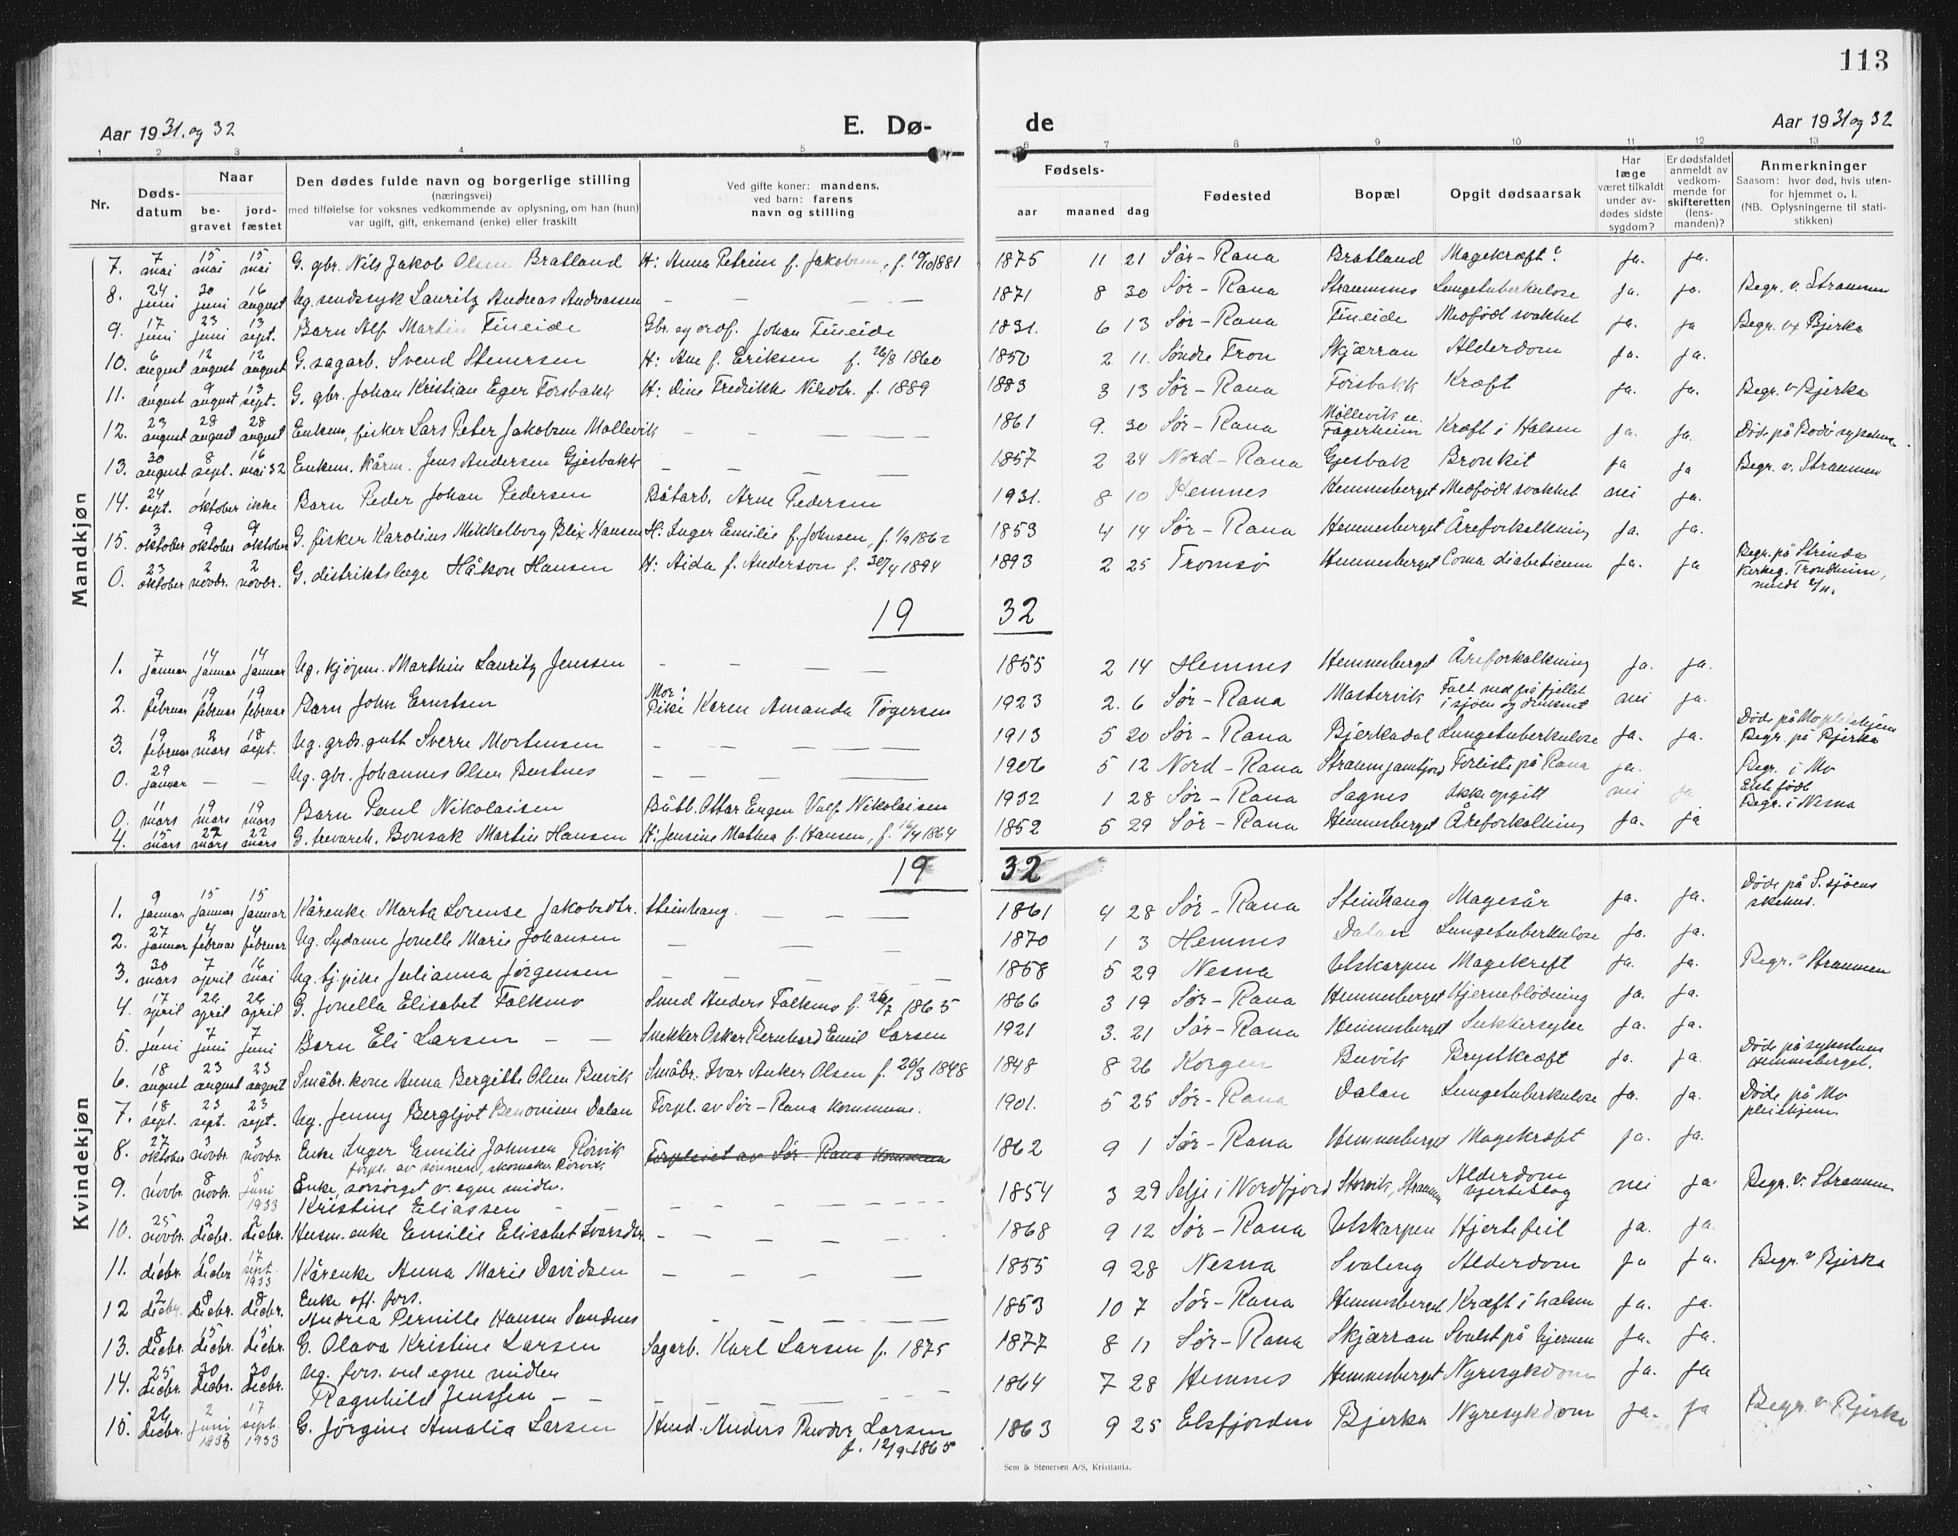 113
Aar 1931. og 32
E. Dø-
de
Aar 1931 og 32
1 2 3 4 5 6 7 8 9 10 11 12 13
Nr.
Døds-
datum
Naar
be-
gravet
jord-
fæstet
Den dødes fulde navn og borgerlige stilling
(næringsvei)
med tilføielse for voksnes vedkommende av oplysning, om han (hun)
var ugift, gift, enkemand (enke) eller fraskilt
Ved gifte koner: mandens,
ved barn: farens
navn og stilling
Fødsels-
aar maaned dag
Fødested
Bopæl
Opgit dødsaarsak
Har
læge
været tilkaldt
under av-
dødes sidste
sygdom?
Er dødsfaldet
anmeldt av
vedkom-
mende for
skifteretten
(lens-
manden)?
Anmerkninger
Saasom: hvor død, hvis uten-
for hjemmet o. l.
(NB. Oplysningerne til stati-
stikken)
Mandkjøn
7. 7 mai 15 mai 15 mai G. gbr. Nils Jakob Olsen Bratland H: Anna Petrine f. Jakobsen, f. 1881 1875 11 21 Sør-Rana Bratland Magekræft? ja. ja.
8. 24 juni 30 juni 16 august Ug. sindssyk Lauritz Andreas Andreassen — — — — 1871 8 30 Sør-Rana Straumsnes Lungetuberkulose ja. ja. Begr. v. Straumen
9. 17 juni 23 juni 13 sept. Barn Alf Martin Fineide Gbr. og prof. Johan Fineide 1831. 6 13 Sør-Rana Fineide Medfødt svakhet ja. ja Begr. v Bjerka
10. 6 august 12 august 12 august G. sagarb. Svend Stenersen H: Ane f. Eriksen f. 26/8 1860 1850 2 11. Søndre Fron Skjærran Alderdom ja. ja.
11. 1 august 9 august 13 sept. G. gbr. Johan Kristian Eger Forsbakk H: Dine Fredrikke Nilsdtr. f. 1889 1883 3 13 Sør-Rana Forsbakk Kræft ja. ja. Begr. v Bjerka
12. 23 august 28 august 28 august Enkem, fisker Lars Peter Jakobsen Møllevik — — — 1861 9. 30 Sør-Rana Møllevik Fagerheim Kræft i Halsen ja. ja. Døde på Bodø sykehus.
13. 30 august 8 sept. 16 mai 32 Enkem. kårm. Jens Andersen Gjesbakk — — — — 1857 2 24 Nord-Rana Gjesbak Bronkit ja ja Begr. v. Straumen
14. 24 sept. 1 oktober ikke Barn Peder Johan Pedersen Båtarb. Arne Pedersen 1931. 8 10 Hemnes Hemnesberget Medfødt svakhet nei ja.
15. 3 oktober 9 oktober 9 oktober G. fisker Karolius Mekkelborg Blix Hansen H: Inger Emilie f. Johnsen, f. 1/9 1862 1853 4 14 Sør-Rana Hemnesberget Åreforkalkning ja. ja.
0. 23 oktober 2 novbr. 2 novbr. G. distriktslæge Håkon Hansen H: Aida f. Anderson f. 30/4 1894 1893 2 25 Tromsø Hemnesberget Coma diabeticum ja. ja Begr. på Strinda kirkeg. Trondheim, meldt 2/11.
19 32
1. 7 januar 14 januar 14 januar Ug. kjøpm. Marthin Lauritz Jenssen — — — — 1855 2 14 Hemnes Hemnesberget Åreforkalkning ja. ja.
2. 9 februar 19 februar 19 februar Barn John Ernstsen Mor: Pike Karen Amanda Tøgersen 1923 2. 6 Sør-Rana Mastervik Falt ned på fjellet i sjøen og druknet nei ja.
3. 19 februar 2 mars 18 sept. Ug. grds.gutt Sverre Mortensen — — — — 1913 5 20 Sør-Rana Bjerkadal Lungetuberkulose ja. ja. Døde på Mo pleiehjem Begr. på Bjerka
0. 29 januar — — Ug. gbr. Johannes Olsen Bentnes — — — — 1906 5 12 Nord-Rana Straumfjord Forliste på Rana ja. Begr. i Mo
0. 11 mars 19 mars 19 mars Barn Paul Nikolaisen Båtb. Ottar Eugen Nikolaisen 1932 1 28 Sør-Rana Sagnes Ikke opgitt nei ja Ekte født Begr. i Nesna
4. 15 mars 22 mars 22 mars G. Bonsak Martin Hansen H: Jensine Mathea f. Hansen, f. 16/4 1864 1852 5 29 Sør-Rana Hemnesberget Åreforkalkning ja. ja
19 32
Kvindekjøn
1. 9 januar 15 januar 15 januar Kårenke Marta Lorense Jakobsdtr. Steinhaug. — — — 1861 4 28 Sør-Rana Steinhaug Magesår ja. ja. Døde på S.sjøens skehus.
2. 27 januar 4 februar 4 februar Ug. Sydame Jonelle Marie Johansen — — — 1870 1 3 Hemnes Dalan Lungetuberkulose ja. ja.
3. 30 mars 7 april 16 mai Ug. tj.pike Julianna Jørgensen — — — — 1858 5 29 Nesna Utskarpen Magekreft ja. ja. Begr. v Straumen
4. 17 april 24 april 24 april G. Jonella Elisabet Falkmo Smed Anders Falkmo f. 26/7 1865 1866 3 19 Sør-Rana Hemnesberget Hjerneblødning ja. ja.
5. 1 juni 7 juni 7 juni Barn Eli Larsen — — Snekker Oskar Bernhard Emil Larsen 1921 3. 21 Sør-Rana Hemnesberget Sukkersyke ja. ja.
6. 18 august 23 august 23 august Småbr.kone Anna Bergitte Olsen Buvik Småbr. Ivar Anker Olsen f. 26/3 1848 1848 8 26 Korgen Buvik Brystkræft ja. ja. Døde på sykestuen Hemnesberget.
7. 18 sept. 23 sept. 23 sept. Ug. Jenny Bergljot Benonisen Dalan Forpl. av Sør-Rana kommune. 1901. 5 25 Sør-Rana Dalan Lungetuberkulose ja. ja. Døde på Mo pleiehjem
8. 27 oktober 3 novbr. 3 novbr. Enke Inger Emilie Johnsen Rørvik forpl. av sønnen, skomaker Rørvik Forpleiet av Sør-Rana kommune 1862 9 1 Sør-Rana Hemnesberget Magekræft ja. ja.
9. 1 novbr. 8 novbr. 5 juni 1933 Enke, forsørget v. egne midler. Kristine Eliassen — — — — — 1854 3 29 Selje i Nordfjord Storvik, Straumen Alderdom hjerteslag nei ja. Begr. v. Straumen
10. 25 novbr. 2 decbr. 2 decbr. Husm.enke Emilie Elisabet Ivarsdtr. — — — — 1868 9 12 Sør-Rana Utskarpen Hjertefeil ja. ja.
11. 1 decbr. 10 decbr 17 sept. 1933 Kårenke Anna Marie Davidsen — — — — 1855 9 28 Nesna Svaleng Alderdom ja ja. Begr. v Bjerka
12 2 decbr. 8 decbr. 8 decbr. Enke off. fors. Andrea Pernille Hansen Sandnes — — — — 1853 10 7 Sør-Rana Hemnesberget Kræft i halsen ja. ja.
13. 8 decbr. 15 decbr. 15 decbr. G. Olava Kristine Larsen Sagarb. Karl Larsen f. 1875 1877 8 11 Sør-Rana Skjærran Svulst på hjernen ja. ja.
14. 25 decbr. 30 decbr. 30 decbr. Ug. fors. ved egne midler Ragnhild Jenssen — — — — — 1864 7 28 Hemnes Hemnesberget Nyresykdom ja. ja
15. 26 decbr. 2 juni 17 sept. 1933 G. Jørgine Amalia Larsen Anders Theodor Larsen f. 12/9 1865 1863 9 25 Elsfjorden Bjerka Nyresykdom ja. ja Begr. v Bjerka
Sem & Stenersen A/S, Kristiania.